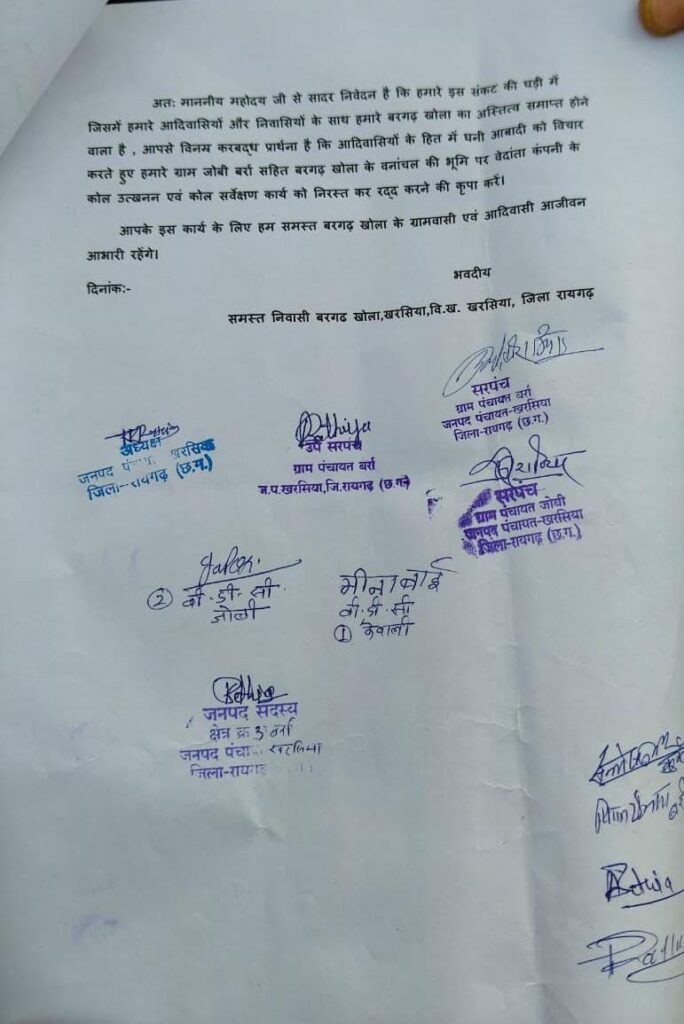 अतः माननीय महोदय जी से सादर निवेदन है कि हमारे इस संकट की घड़ी में
जिसमें हमारे आदिवासियों और निवासियों के साथ हमारे बरगढ़ खोला का अस्तित्व समाप्त होने
वाला है , आपसे विनम्र करबद्ध प्रार्थना है कि आदिवासियों के हित में घनी आबादी को विचार
करते हुए हमारे ग्राम जोबी बर्रा सहित बरगढ़ खोला के वनांचल की भूमि पर वेदांता कंपनी के
कोल उत्खनन एवं कोल सर्वेक्षण कार्य को निरस्त कर रद्द करने की कृपा करें।
आपके इस कार्य के लिए हम समस्त बरगढ़ खोला के ग्रामवासी एवं आदिवासी आजीवन
आभारी रहेंगे।
दिनांक:-
भवदीय
समस्त निवासी बरगढ खोला,खरसिया,वि.ख. खरसिया, जिला रायगढ़
सरपंच
ग्राम पंचायत बर्रा
जनपद पंचायत-खरसिया
जिला-रायगढ़ (छ.ग.)
अध्यक्ष
जनपद खरसिया
जिला-रायगढ़ (छ.ग.)
Rathiya
उप सरपंच
ग्राम पंचायत बर्रा
ज.प.खरसिया,जि.रायगढ़ (छ.ग.)
सरपंच
ग्राम पंचायत जोबी
जनपद पंचायत-खरसिया
जिला-रायगढ़ (छ.ग.)
② बी.डी.सी.
मीना बाई
बी.डी.सी
①
जनपद सदस्य
क्षेत्र क्र बर्रा
जनपद खरसिया